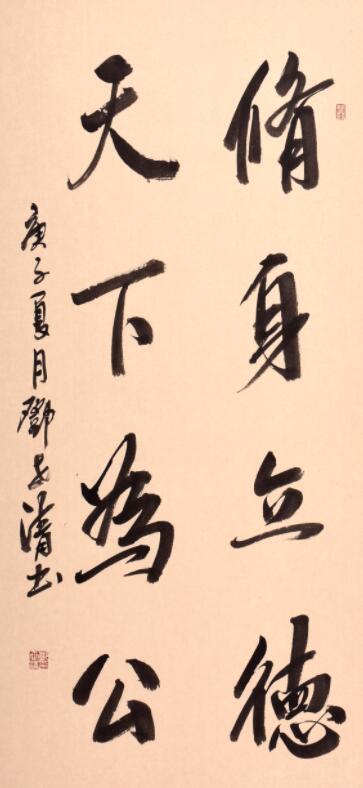 脩身立德
天下為公
庚子夏月鄧清书